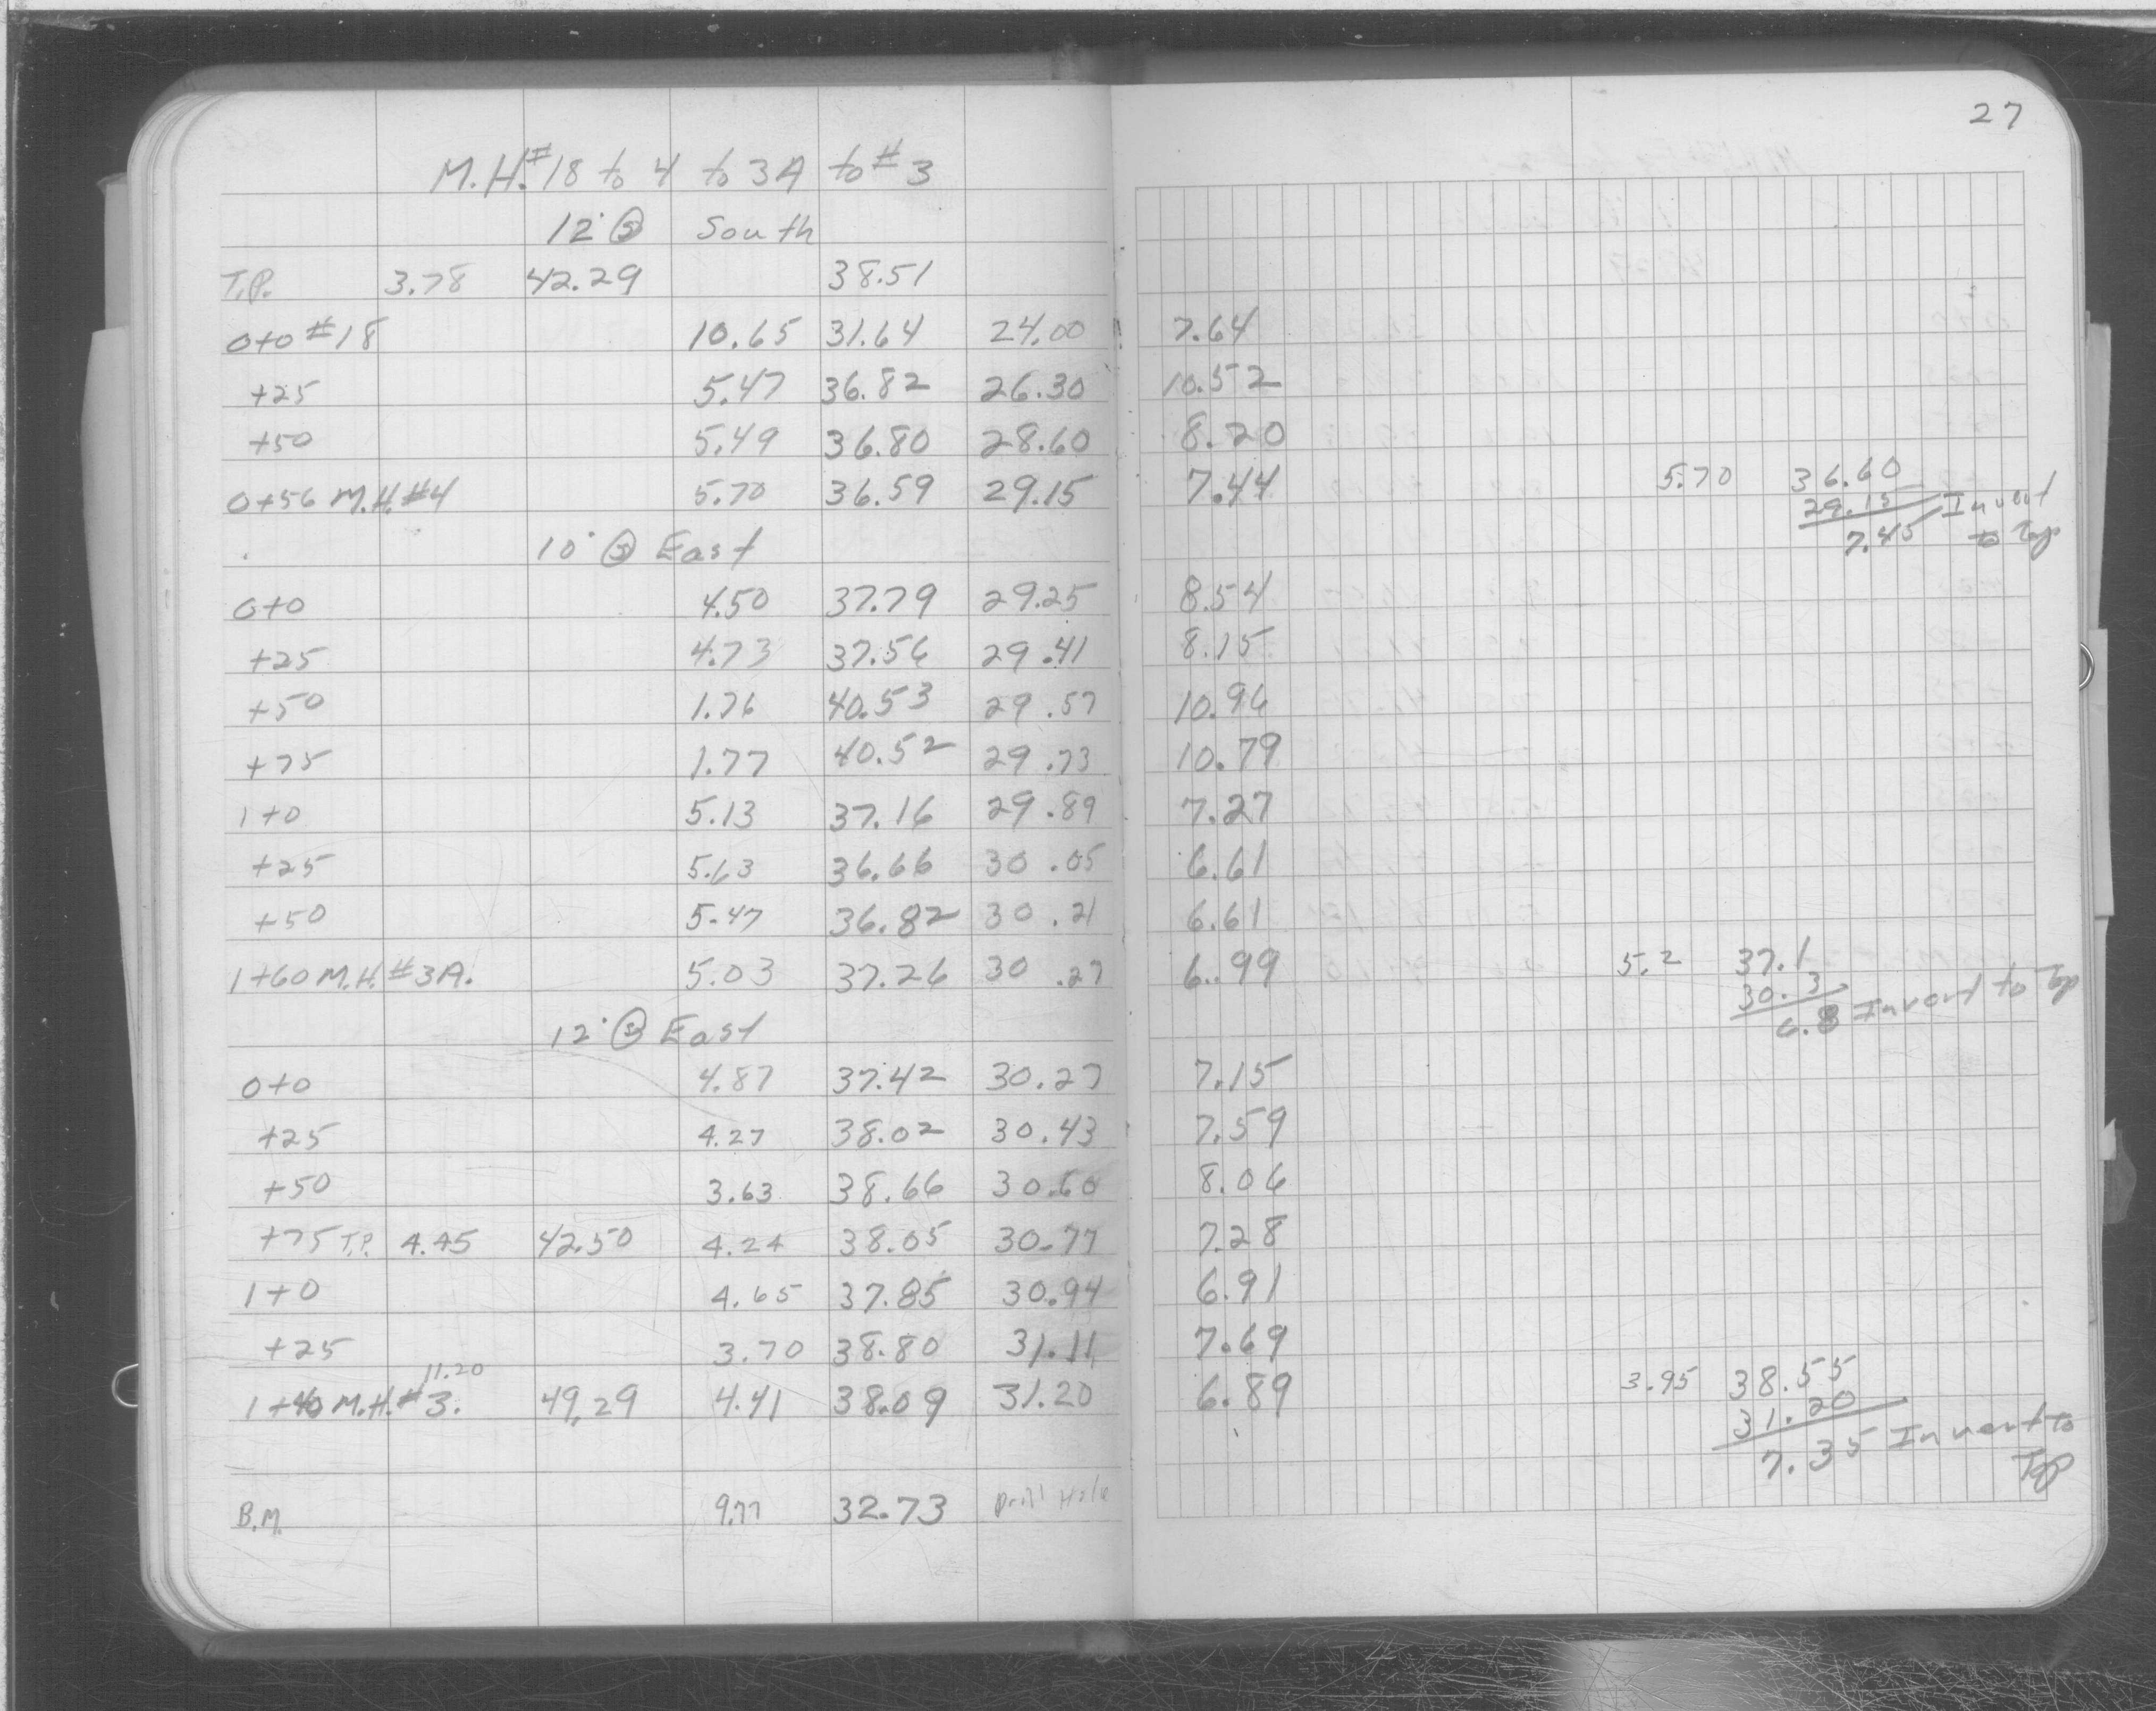 27
M.H.#18 to 4 to 3A to #3
12" Ⓢ South
T.P. 3.78 42.29 38.51
0+0 #18 10.65 31.64 24.00 7.64
+25 5.47 36.82 26.30 10.52
+50 5.49 36.80 28.60 8.20
0+56 M.H.#4 5.70 36.59 29.15 7.44 5.70 36.60
29.15 Invert
7.45 to Top
10" Ⓢ East
0+0 4.50 37.79 29.25 8.54
+25 4.73 37.56 29.41 8.15
+50 1.76 40.53 29.57 10.96
+75 1.77 40.52 29.73 10.79
1+0 5.13 37.16 29.89 7.27
+25 5.63 36.66 30.05 6.61
+50 5.47 36.82 30.21 6.61
1+60 M.H.#3A. 5.03 37.26 30.27 6.99 5.2 37.1
30.3
6.8 Invert to Top
12" Ⓢ East
0+0 4.87 37.42 30.27 7.15
+25 4.27 38.02 30.43 7.59
+50 3.63 38.66 30.60 8.06
+75 T.P. 4.45 42.50 4.24 38.05 30.77 7.28
1+0 4.65 37.85 30.94 6.91
+25 3.70 38.80 31.11 7.69
11.20
1+40 M.H.#3. 49.29 4.41 38.09 31.20 6.89 3.95 38.55
31.20
7.35 Invert to
Top
B.M. 9.77 32.73 Drill Hole